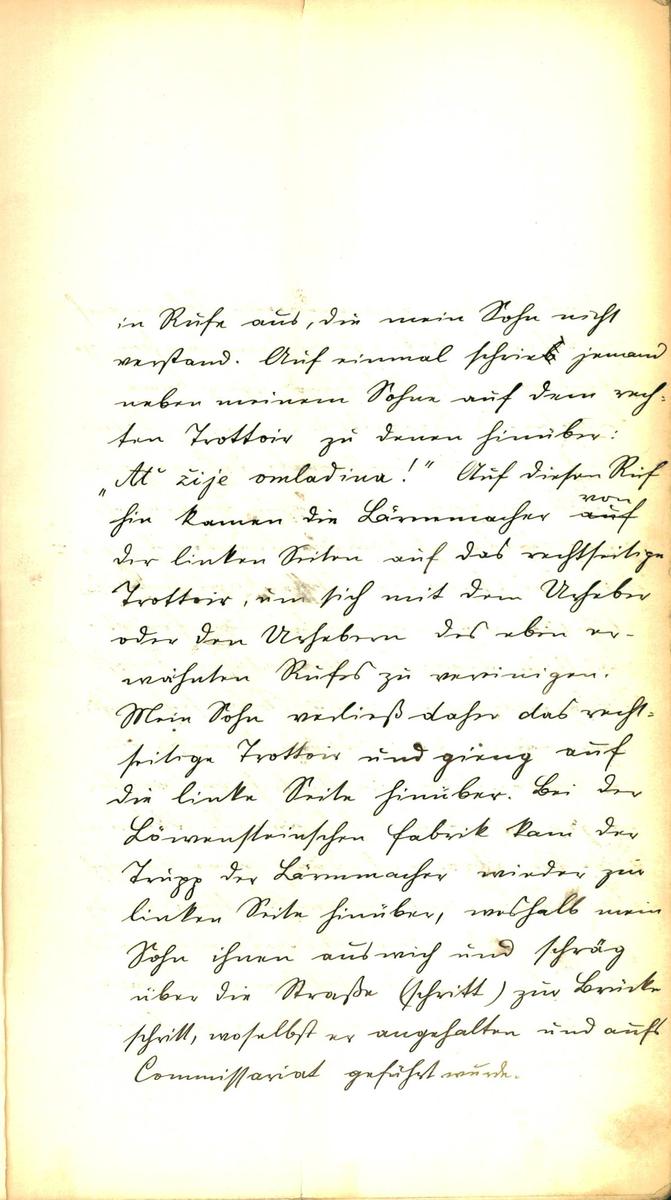 in Rufe aus, die mein Sohn nicht
verstand. Auf einmal schrie jemand
neben meinem Sohne auf dem rech-
ten Trottoir zu denen hinüber:
„Ať žije omladina!" Auf diesen Ruf
hin kamen die Lärmmacher auf von
der linken Seiten auf das rechtseitige
Trottoir, um sich mit dem Urheber
oder den Urhebern des eben er-
wähnten Rufes zu vereinigen.
Mein Sohn verließ daher das recht-
seitige Trottoir und gieng auf
die linke Seite hinüber. Bei der
Löwensteinschen Fabrik kam der
Trupp der Lärmmacher wieder zur
linken Seite hinüber, weshalb mein
Sohn ihnen auswich und schräg
über die Straße (schritt) zur Brücke
schritt, woselbst er angehalten und aufs
Commissariat geführt wurde.